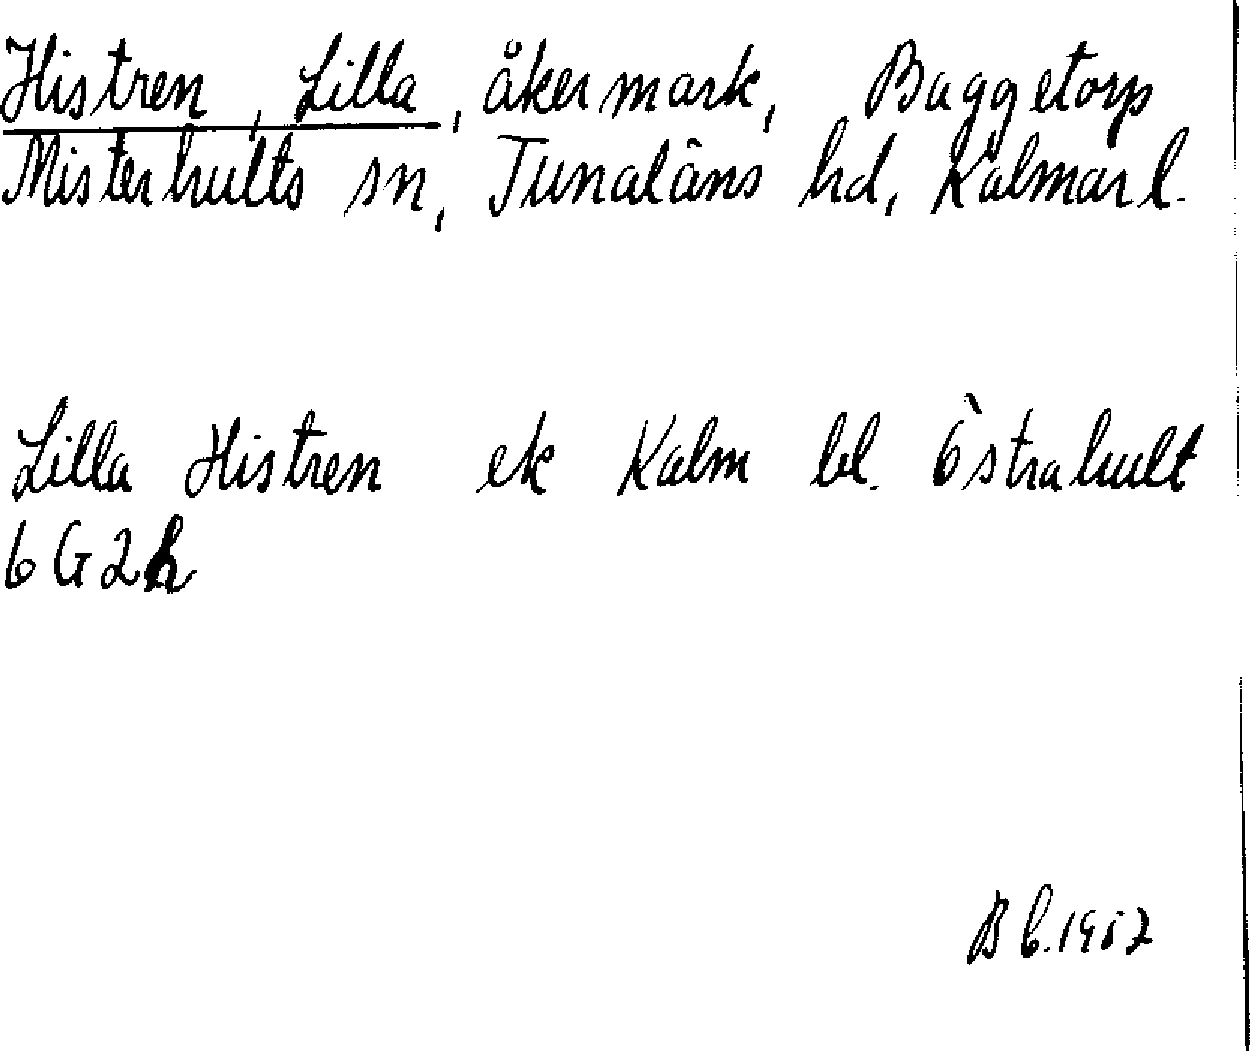 Histren, Lilla, åkermark, Baggetorp
Misterhults sn, Tunaläns hd, Kalmar l.
Lilla Histren ek Kalm bl. Östrahult
6 G 2 h
B b. 1952